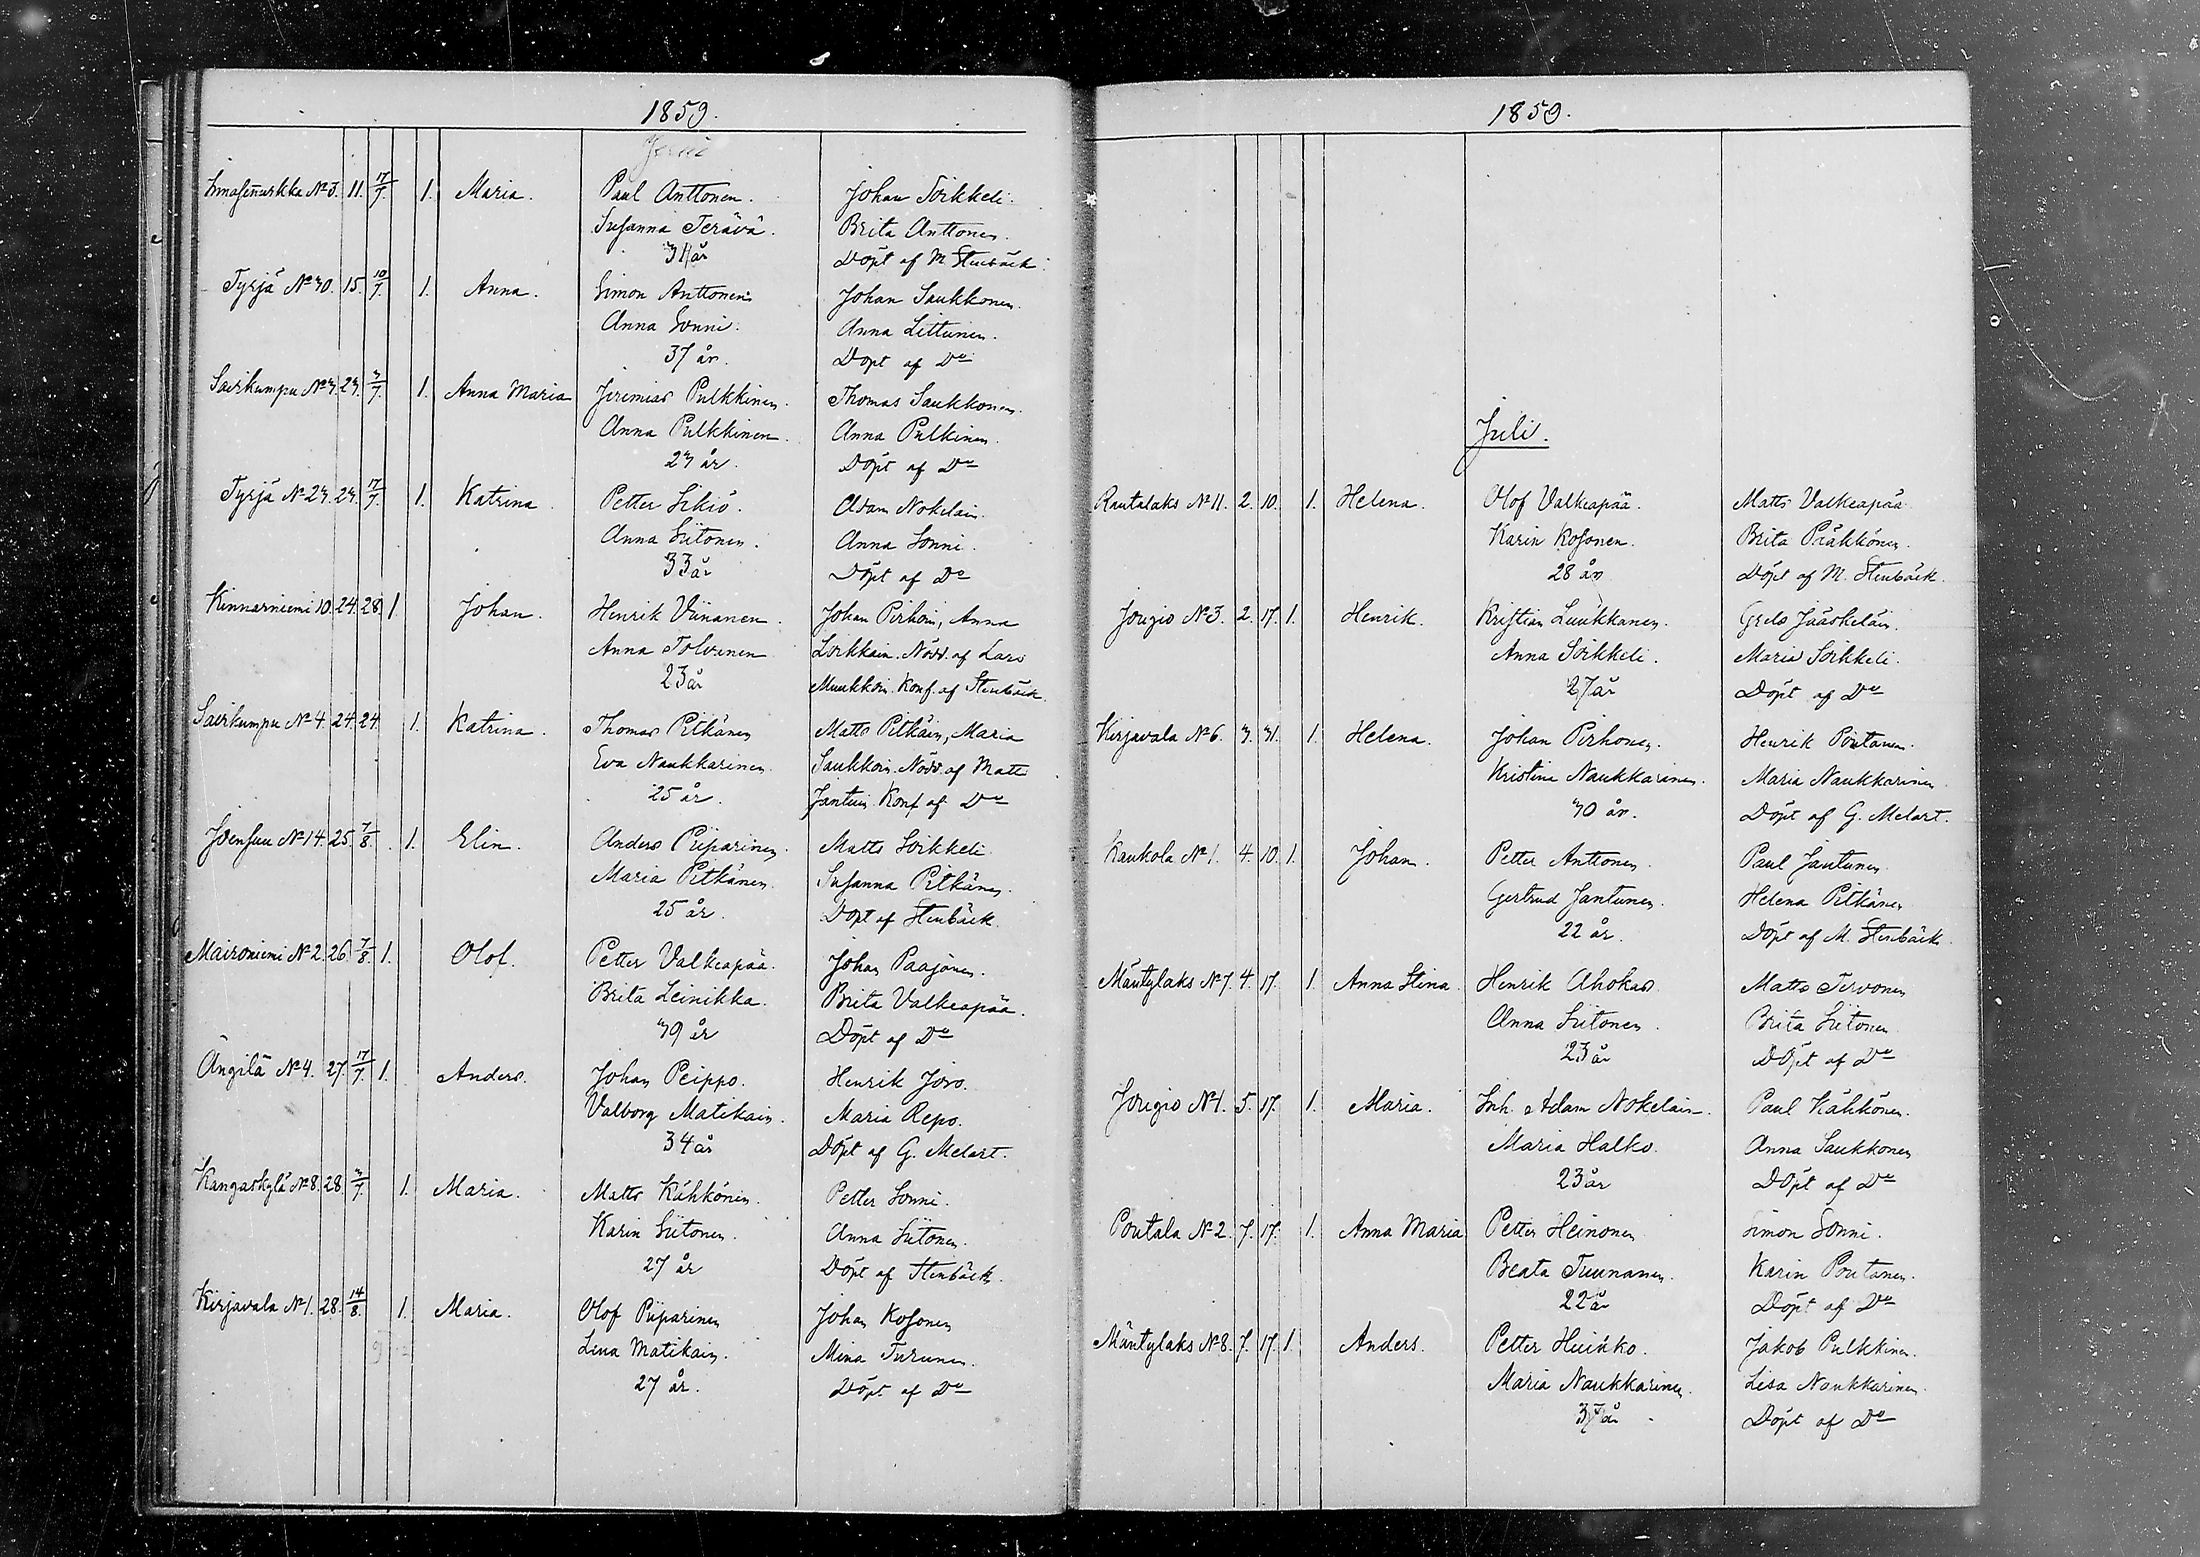 1859.
Juni
Nº 3. 11. 17/7. 1. Maria. Paul Anttonen. Johan Soikkeli.
Susanna Terävä. Brita Anttonen.
31 år Döpt af M. Stenbäck.
Tyrjä Nº 30. 15. 10/7. 1. Anna. Simon Anttonen Johan Saukkonen.
Anna Sonni. Anna Littunen.
37 år. Döpt af Do
Sairkumpu Nº 3. 23. 3/7. 1. Anna Maria Jeremias Pulkkinen. Thomas Saukkonen.
Anna Pulkkinen. Anna Pulkinen.
23 år. Döpt af Do
Tyrjä Nº 23. 23. 17/7. 1. Katrina. Petter Sikiö. Adam Nokelain.
Anna Siitonen. Anna Sonni.
33 år Döpt af Do
Kinnarniemi 10. 24. 28. 1. Johan. Henrik Viinanen. Johan Pirhoin, Anna
Anna Tolvanen Loikkain. Nödd. af Lars
23 år Muukkoin. Konf. af Stenbäck
Sairkumpu Nº 4. 24. 24. 1. Katrina. Thomas Pitkänen Matts Pitkäin, Maria
Eva Naukkarinen. Saukkoin. Nödd. af Matts
25 år. Jantuin. Konf. af Do
Joensuu Nº 14. 25. 7/8. 1. Elin. Anders Piiparinen. Matts Soikkeli
Maria Pitkänen. Susanna Pitkänen.
25 år. Döpt af Stenbäck.
Maironiemi Nº 2. 26. 7/8. 1. Olof. Petter Valkeapää. Johan Paajanen.
Brita Leinikka. Brita Valkeapää.
39 år Döpt af Do
Ängilä Nº 4. 27. 17/7. 1. Anders. Johan Peippo. Henrik Joro.
Valborg Matikain. Maria Repo.
34 år Döpt af G. Melart.
Kangaskylä Nº 8. 28. 3/7. 1. Maria. Matts Kähkönen. Petter Sonni.
Karin Siitonen. Anna Siitonen.
27 år Döpt af Stenbäck.
Kirjavala Nº 1. 28. 14/8. 1. Maria. Olof Piiparinen Johan Kosonen
Lena Matikain. Mina Turunen.
27 år. Döpt af Do
1859.
Juli.
Rautalaks Nº 11. 2. 10. 1. Helena. Olof Valkeapää. Matts Valkeapää
Karin Kosonen. Brita Präkkönen.
28 år Döpt af M. Stenbäck.
Jougio Nº 3. 2. 17. 1. Henrik. Kristian Luukkanen. Grels Jääskeläin.
Anna Soikkeli. Maria Soikkeli.
27 år Döpt af Do
Kirjavala Nº 6. 3. 31. 1. Helena. Johan Pirhonen. Henrik Poutanen.
Kristina Naukkarinen. Maria Naukkarinen
30 år. Döpt af G. Melart.
Kaukola Nº 1. 4. 10. 1. Johan. Petter Anttonen. Paul Jantunen.
Gertrud Jantunen. Helena Pitkänen
22 år. Döpt af M. Stenbäck.
Mäntylaks Nº 7. 4. 17. 1. Anna Stina. Henrik Ahokas. Matts Tervonen
Anna Siitonen. Brita Siitonen
23 år Döpt af Do
Jougio Nº 1. 5. 17. 1. Maria. Inh. Adam Nokelain. Paul Kähkönen.
Maria Halko. Anna Saukkonen
23 år Döpt af Do
Poutala Nº 2. 7. 17. 1. Anna Maria Petter Heinonen Simon Sonni.
Beata Tuunanen. Karin Poutanen.
22 år Döpt af Do
Mäntylaks Nº 8. 7. 17. 1. Anders. Petter Huikko. Jakob Pulkkinen.
Maria Naukkarinen. Lisa Naukkarinen
37 år Döpt af Do